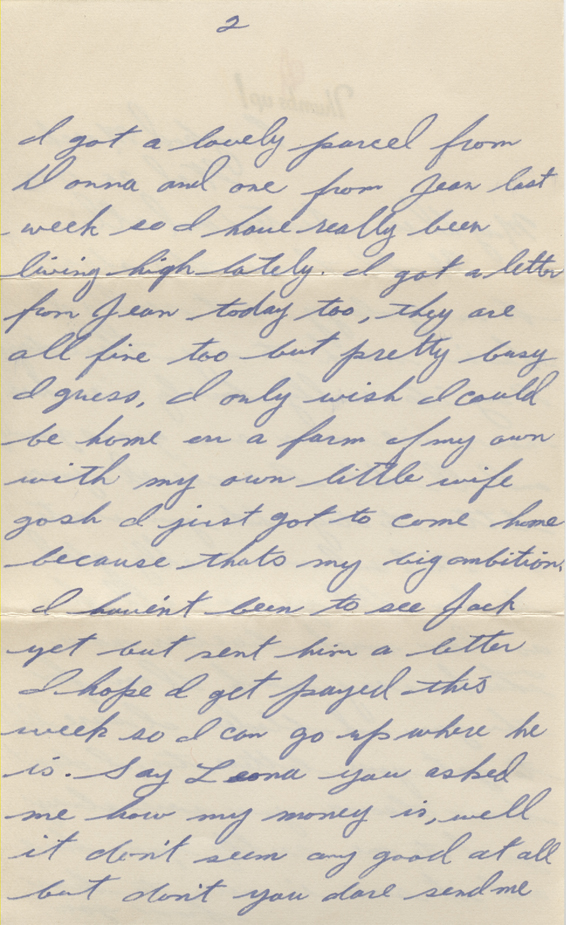 2
Thumbs up!
I got a lovely parcel from
Donna and one from Jean last
week so I have really been
living high lately. I got a letter
from Jean today too, they are
all fine too but pretty busy
I guess, I only wish I could
be home on a farm of my own
with my own little wife
gosh I just got to come home
because thats my big ambition.
I haven't been to see Jack
yet but sent him a letter
I hope I get payed this
week so I can go up where he
is. Say Leona you asked
me how my money is, well
it don't seem any good at all
but don't you dare send me